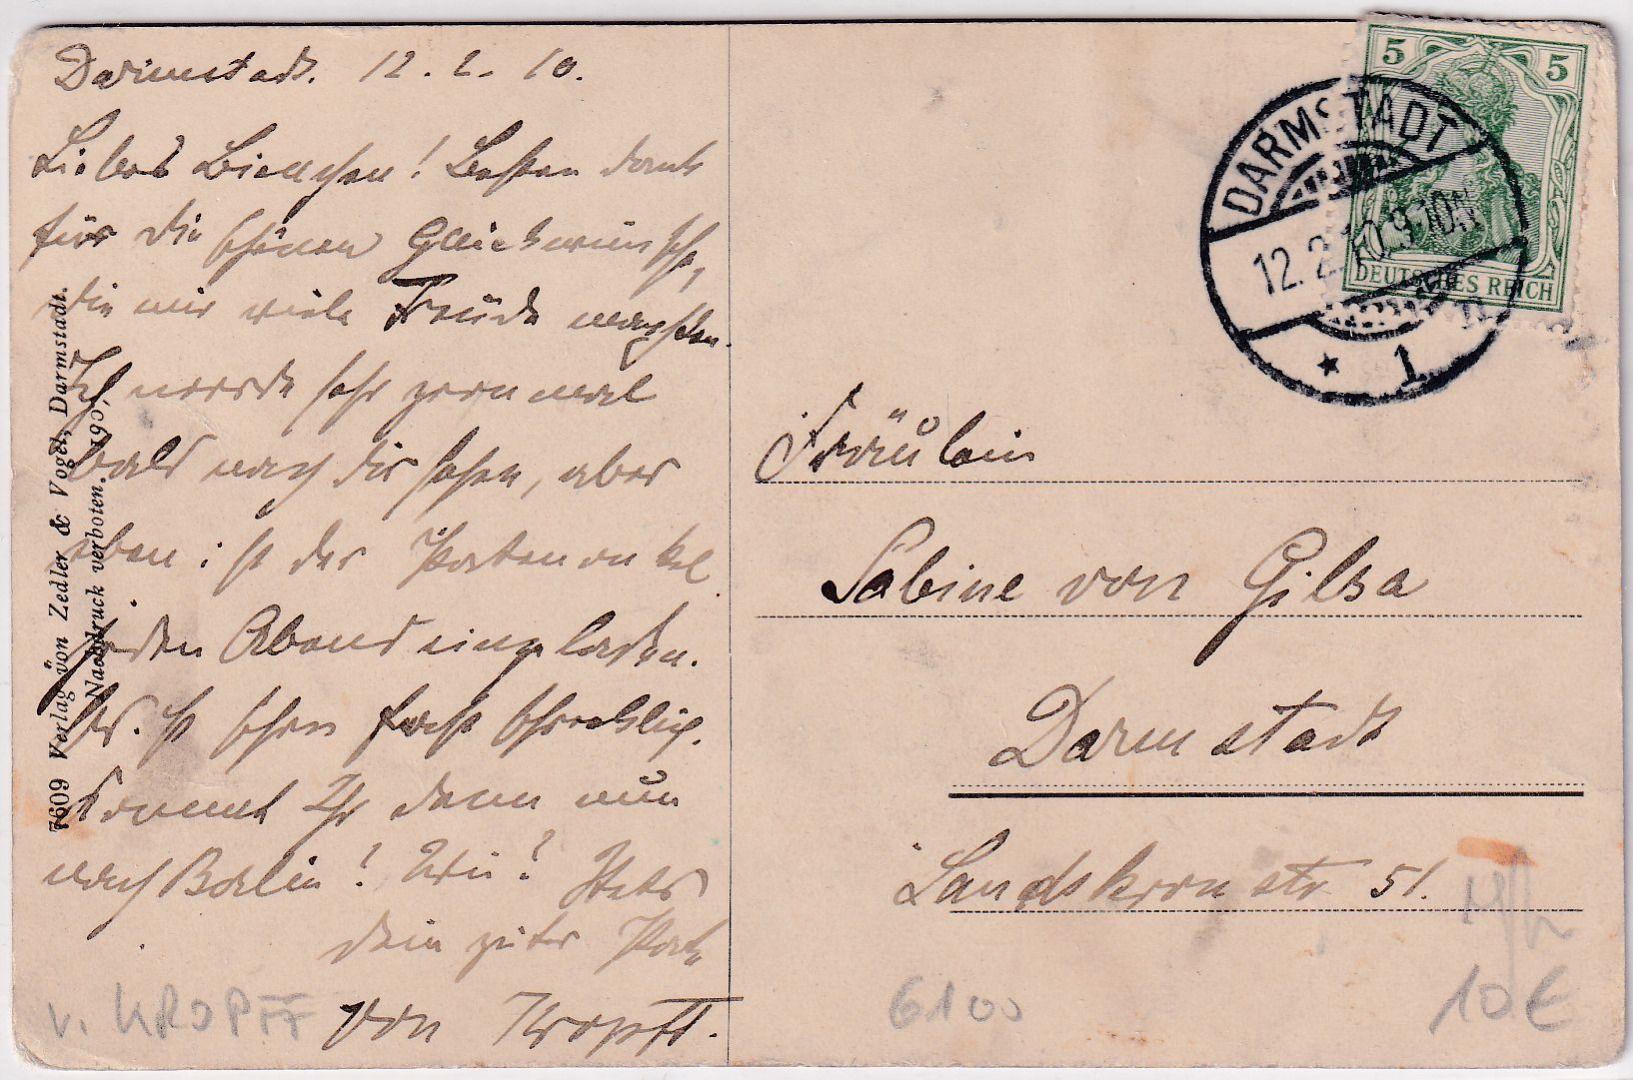 Darmstadt. 12. 2. 10.
Liebes Bienchen! Besten Dank
für die schönen Glückwünsche,
die mir viele Freude machten.
Ich werde sehr gern mal
bald nach dir sehen, aber
eben ist der Patenonkel
jeden Abend eingeladen.
ist schon fast schrecklich.
Kommt Ihr denn nun
nach Berlin? Wie? Stets
dein guter Pate
von Kropff.
v. KROPFF
7609 Verlag von Zedler & Vogel, Darmstadt.
Nachdruck verboten. 190
5 5
DEUTSCHES REICH
DARMSTADT
12.2.10.9-10N
* 1
Fräulein
Sabine von Gilsa
Darmstadt
Landskronstr 51.
6100
10 €